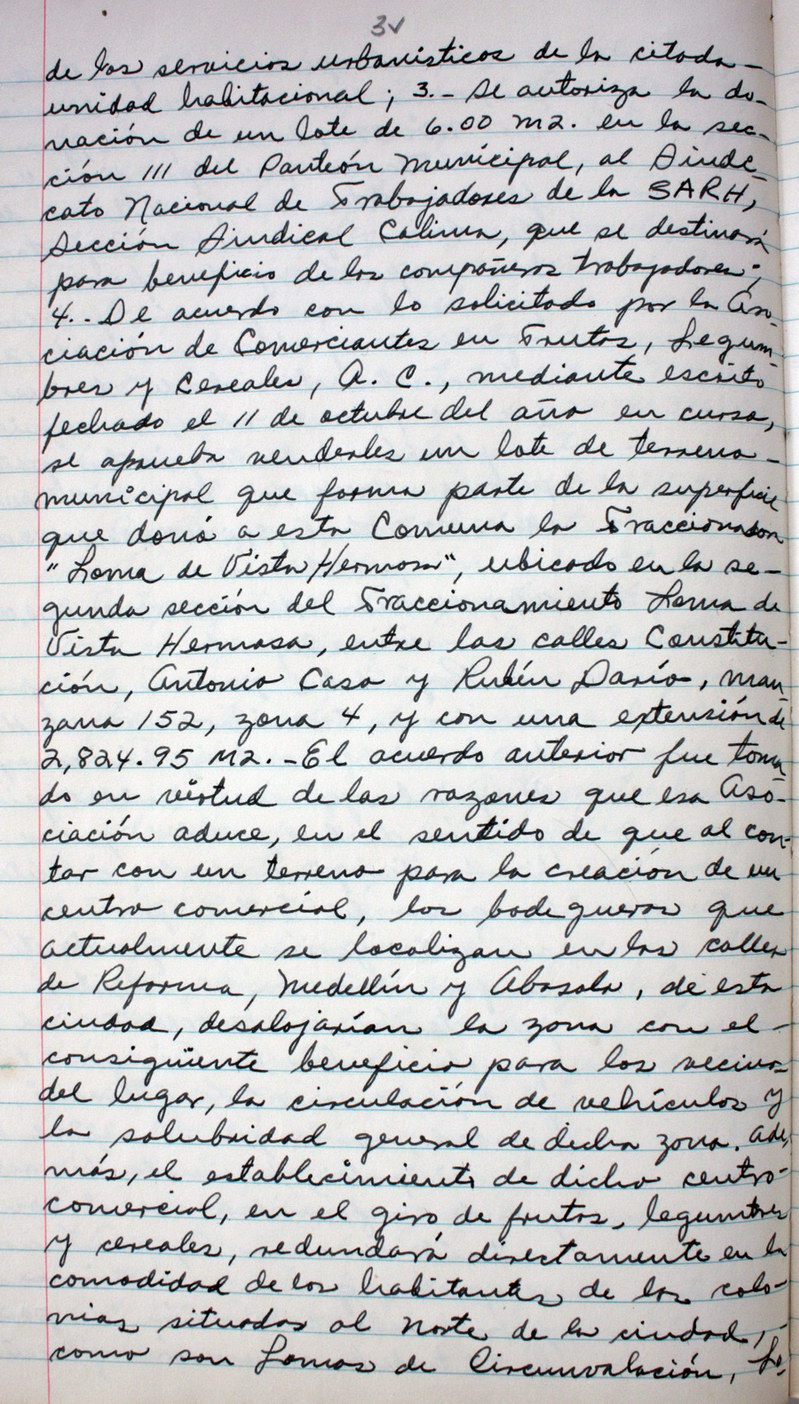 3v
de los servicios urbanísticos de la citada-
unidad habitacional; 3.- Se autoriza la do-
nación de un lote de 6.00 m2. en la sec-
ción III del Panteón Municipal, al Sindi-
cato Nacional de Trabajadores de la SARH,
Sección Sindical Colima, que se destinará
para beneficio de los compañeros trabajadores;
4.- De acuerdo con lo solicitado por la Aso-
ciación de Comerciantes en Frutas, Legum-
bres y Cereales, A. C., mediante escrito
fechado el 11 de octubre del año en curso,
se aprueba venderles un lote de terreno-
municipal que forma parte de la superficie
que donó a esta Comuna la Fraccionadora
"Loma de Vista Hermosa", ubicado en la se-
gunda sección del Fraccionamiento Loma de
Vista Hermosa, entre las calles Constitu-
ción, Antonio Caso y Rubén Darío, man-
zana 152, zona 4, y con una extensión de
2,824.95 m2.- El acuerdo anterior fue toma-
do en virtud de las razones que esa Aso-
ciación aduce, en el sentido de que al con-
tar con un terreno para la creación de un
centro comercial, los bodegueros que
actualmente se localizan en las calles
de Reforma, Medellín y Abasolo, de esta
ciudad, desalojarían la zona con el-
consigüente beneficio para los vecinos
del lugar, la circulación de vehículos y
la salubridad general de dicha zona. Ade-
más, el establecimiento de dicho centro-
comercial, en el giro de frutas, legumbres
y cereales, redundará directamente en la
comodidad de los habitantes de las colo-
nias situadas al norte de la ciudad,-
como son Lomas de Circunvalación, Lo-